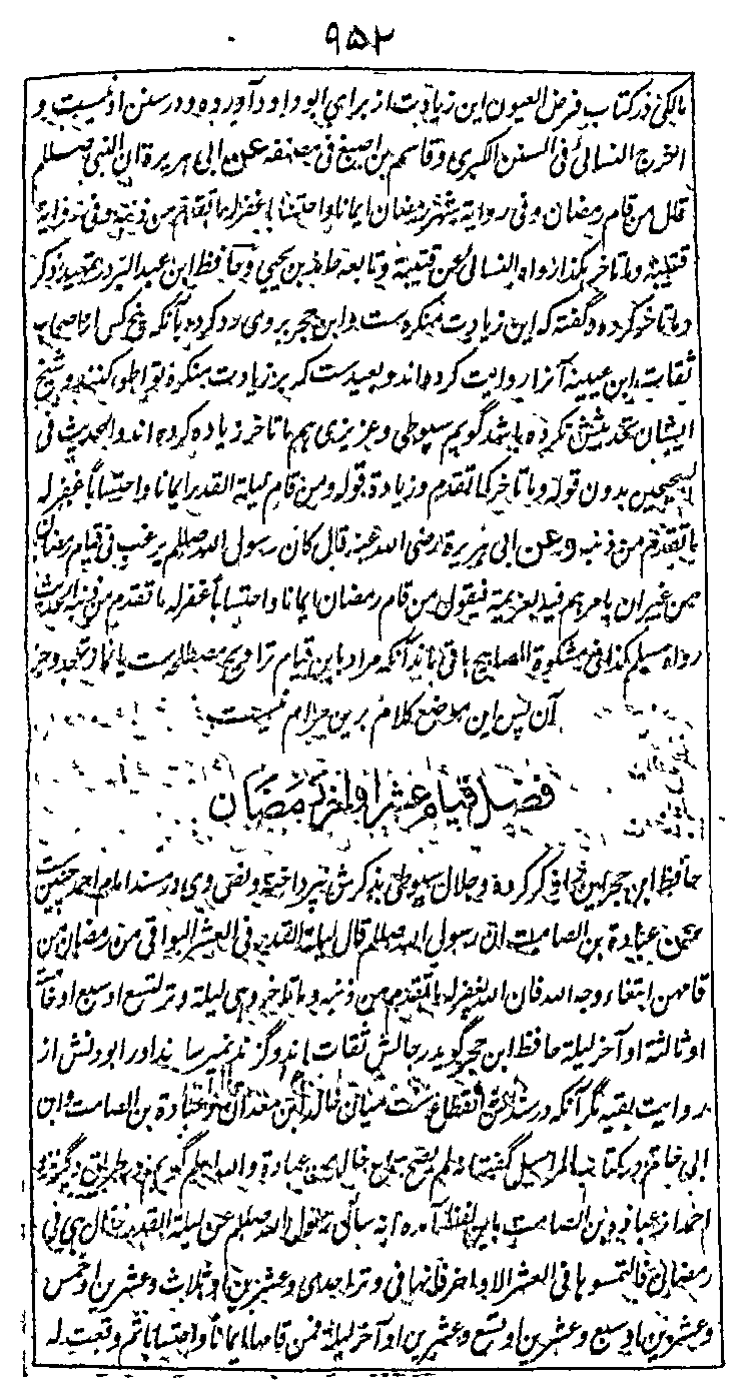 ۹۵۲
مالکی در کتاب فرض العیون این زیادت از برای ابو داود آورده و در سنن او نیست و
اخرج النسائی فی السنن الکبری و قاسم بن اصبغ فی مصنفه عن ابی هریرة ان النبی صللم
قال من قام رمضان و فی روایة شهر رمضان ایمانا و احتسابا غفر له ما تقدم من ذنبه و فی روایة
قتیبة و ما تاخر هکذا رواه النسائی عن قتیبة و تابعه حامد بن یحیی و حافظ ابن عبد البر در تمهید ذکر
و ما تاخر کرده و گفته که این زیادت منکره ست و ابن حجر بروی رد کرده بآنکه پنج کس از اصحاب
ثقات ابن عیینه آنرا روایت کرده اند و بعیدست که بر زیادت منکره تواطو کنند و شیخ
ایشان تحدیثش نکرده باشد گویم سیوطی و عزیزی هم ما تاخر زیاده کرده اند و الحدیث فی
الصحیحین بدون قوله و ما تاخر کما تقدم و زیادة قوله و من قام لیلة القدر ایمانا و احتسابا غفر له
ما تقدم من ذنبه و عن ابی هریرة رضی الله عنه قال کان رسول الله صللم یرغب فی قیام رمضان
من غیر ان یامرهم فیه بعزیمة فیقول من قام رمضان ایمانا و احتسابا غفر له ما تقدم من ذنبه الحدیث
رواه مسلم کذا فی مشکوة المصابیح باقی ماند آنکه مراد باین قیام تراویح مصطلحه ست یا نماز تهجد و جز
آن پس این موضع کلام برین مرام نیست
فضل قیام عشر اواخر رمضان
حافظ ابن حجر این را ذکر کرده و جلال سیوطی بذکرش نپرداخته و نص وی در مسند امام احمد چنین ست
عن عبادة بن الصامت ان رسول الله صللم قال لیلة القدر فی العشر البواقی من رمضان من
قامهن ابتغاء وجه الله فان الله یغفر له ما تقدم من ذنبه و ما تاخر و هی لیلة وتر لتسع او سبع او خامسة
او ثالثة او آخر لیلة حافظ ابن حجر گوید رجالش ثقات اند و گزند نمیرساند اورا بودنش از
روایت بقیه مگر آنکه در سندش انقطاع ست میان خالد بن معدان و عبادة بن الصامت و ابن
ابی حاتم در کتاب المراسیل گفته لم یصح سماع خالد عن عبادة و الله اعلم گویم در طریق دیگر نزد
احمد از عبادة بن الصامت باین لفظ آمده انه سأل رسول الله صللم عن لیلة القدر فقال هی فی
رمضان فالتمسوها فی العشر الاواخر فانها فی وتر احدی و عشرین او ثلاث و عشرین او خمس
و عشرین او سبع و عشرین او تسع و عشرین او آخر لیلة فمن قامها ایمانا و احتسابا ثم وقعت له